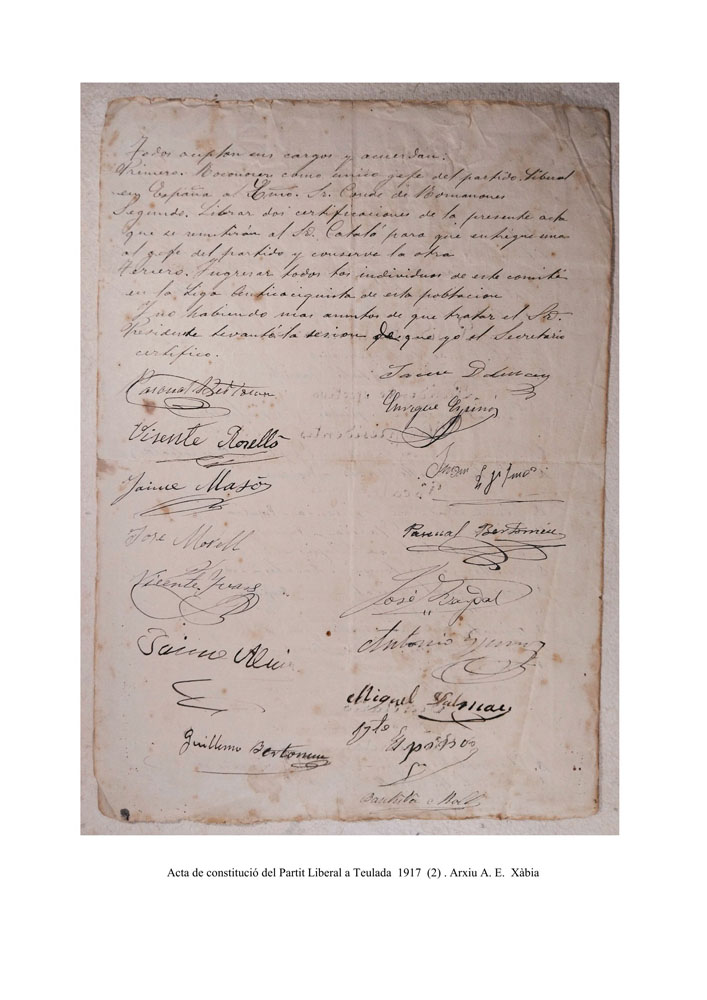 Todos aceptan sus cargos y acuerdan:
Primero. Reconocer como unico gefe del partido Liberal
en España al Exmo. Sr. Conde de Romanones
Segundo. Librar dos certificaciones de la presente acta
que se remitirán al Sr. Catalá para que entregue una
al gefe del partido y conserve la otra
Tercero. Ingresar todos los individuos de este comité
en la Liga Anticaciquista de esta poblacion
Y no habiendo mas asuntos de que tratar el Sr.
Presidente levantó la sesion de que yo el Secretario
certifico.
Pascual Bertomeu
Jaime
Enrique
Visente Roselló
Juan
Jaime Masó
Pascual Bertomeu
José Morell
Vicente Ivars
José
Antonio
Jaime
Miguel
Guillermo Bertomeu
Bautista Moll
Acta de constitució del Partit Liberal a Teulada 1917 (2) . Arxiu A. E. Xàbia